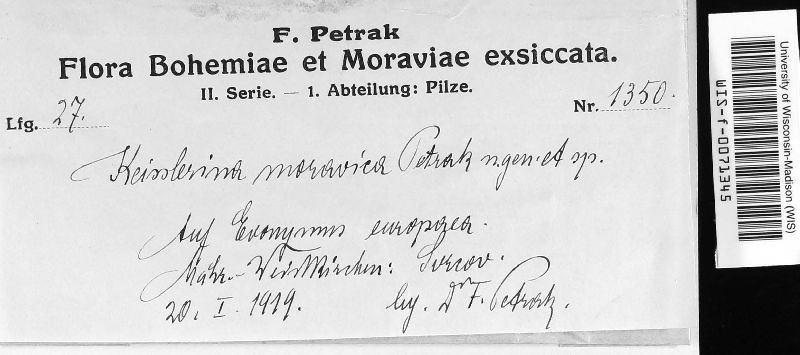 F. Petrak
Flora Bohemiae et Moraviae exsiccata.
II. Serie. — 1. Abteilung: Pilze.
Lfg. 27.
Nr. 1350.
Keisslerina moravica Petrak n. gen. et sp.
Auf Evonymus europaea.
Mähr.-Weisskirchen: Svrcov.
20. I. 1919.
leg. Dr F. Petrak.
University of Wisconsin-Madison (WIS)
WIS-f-0071345